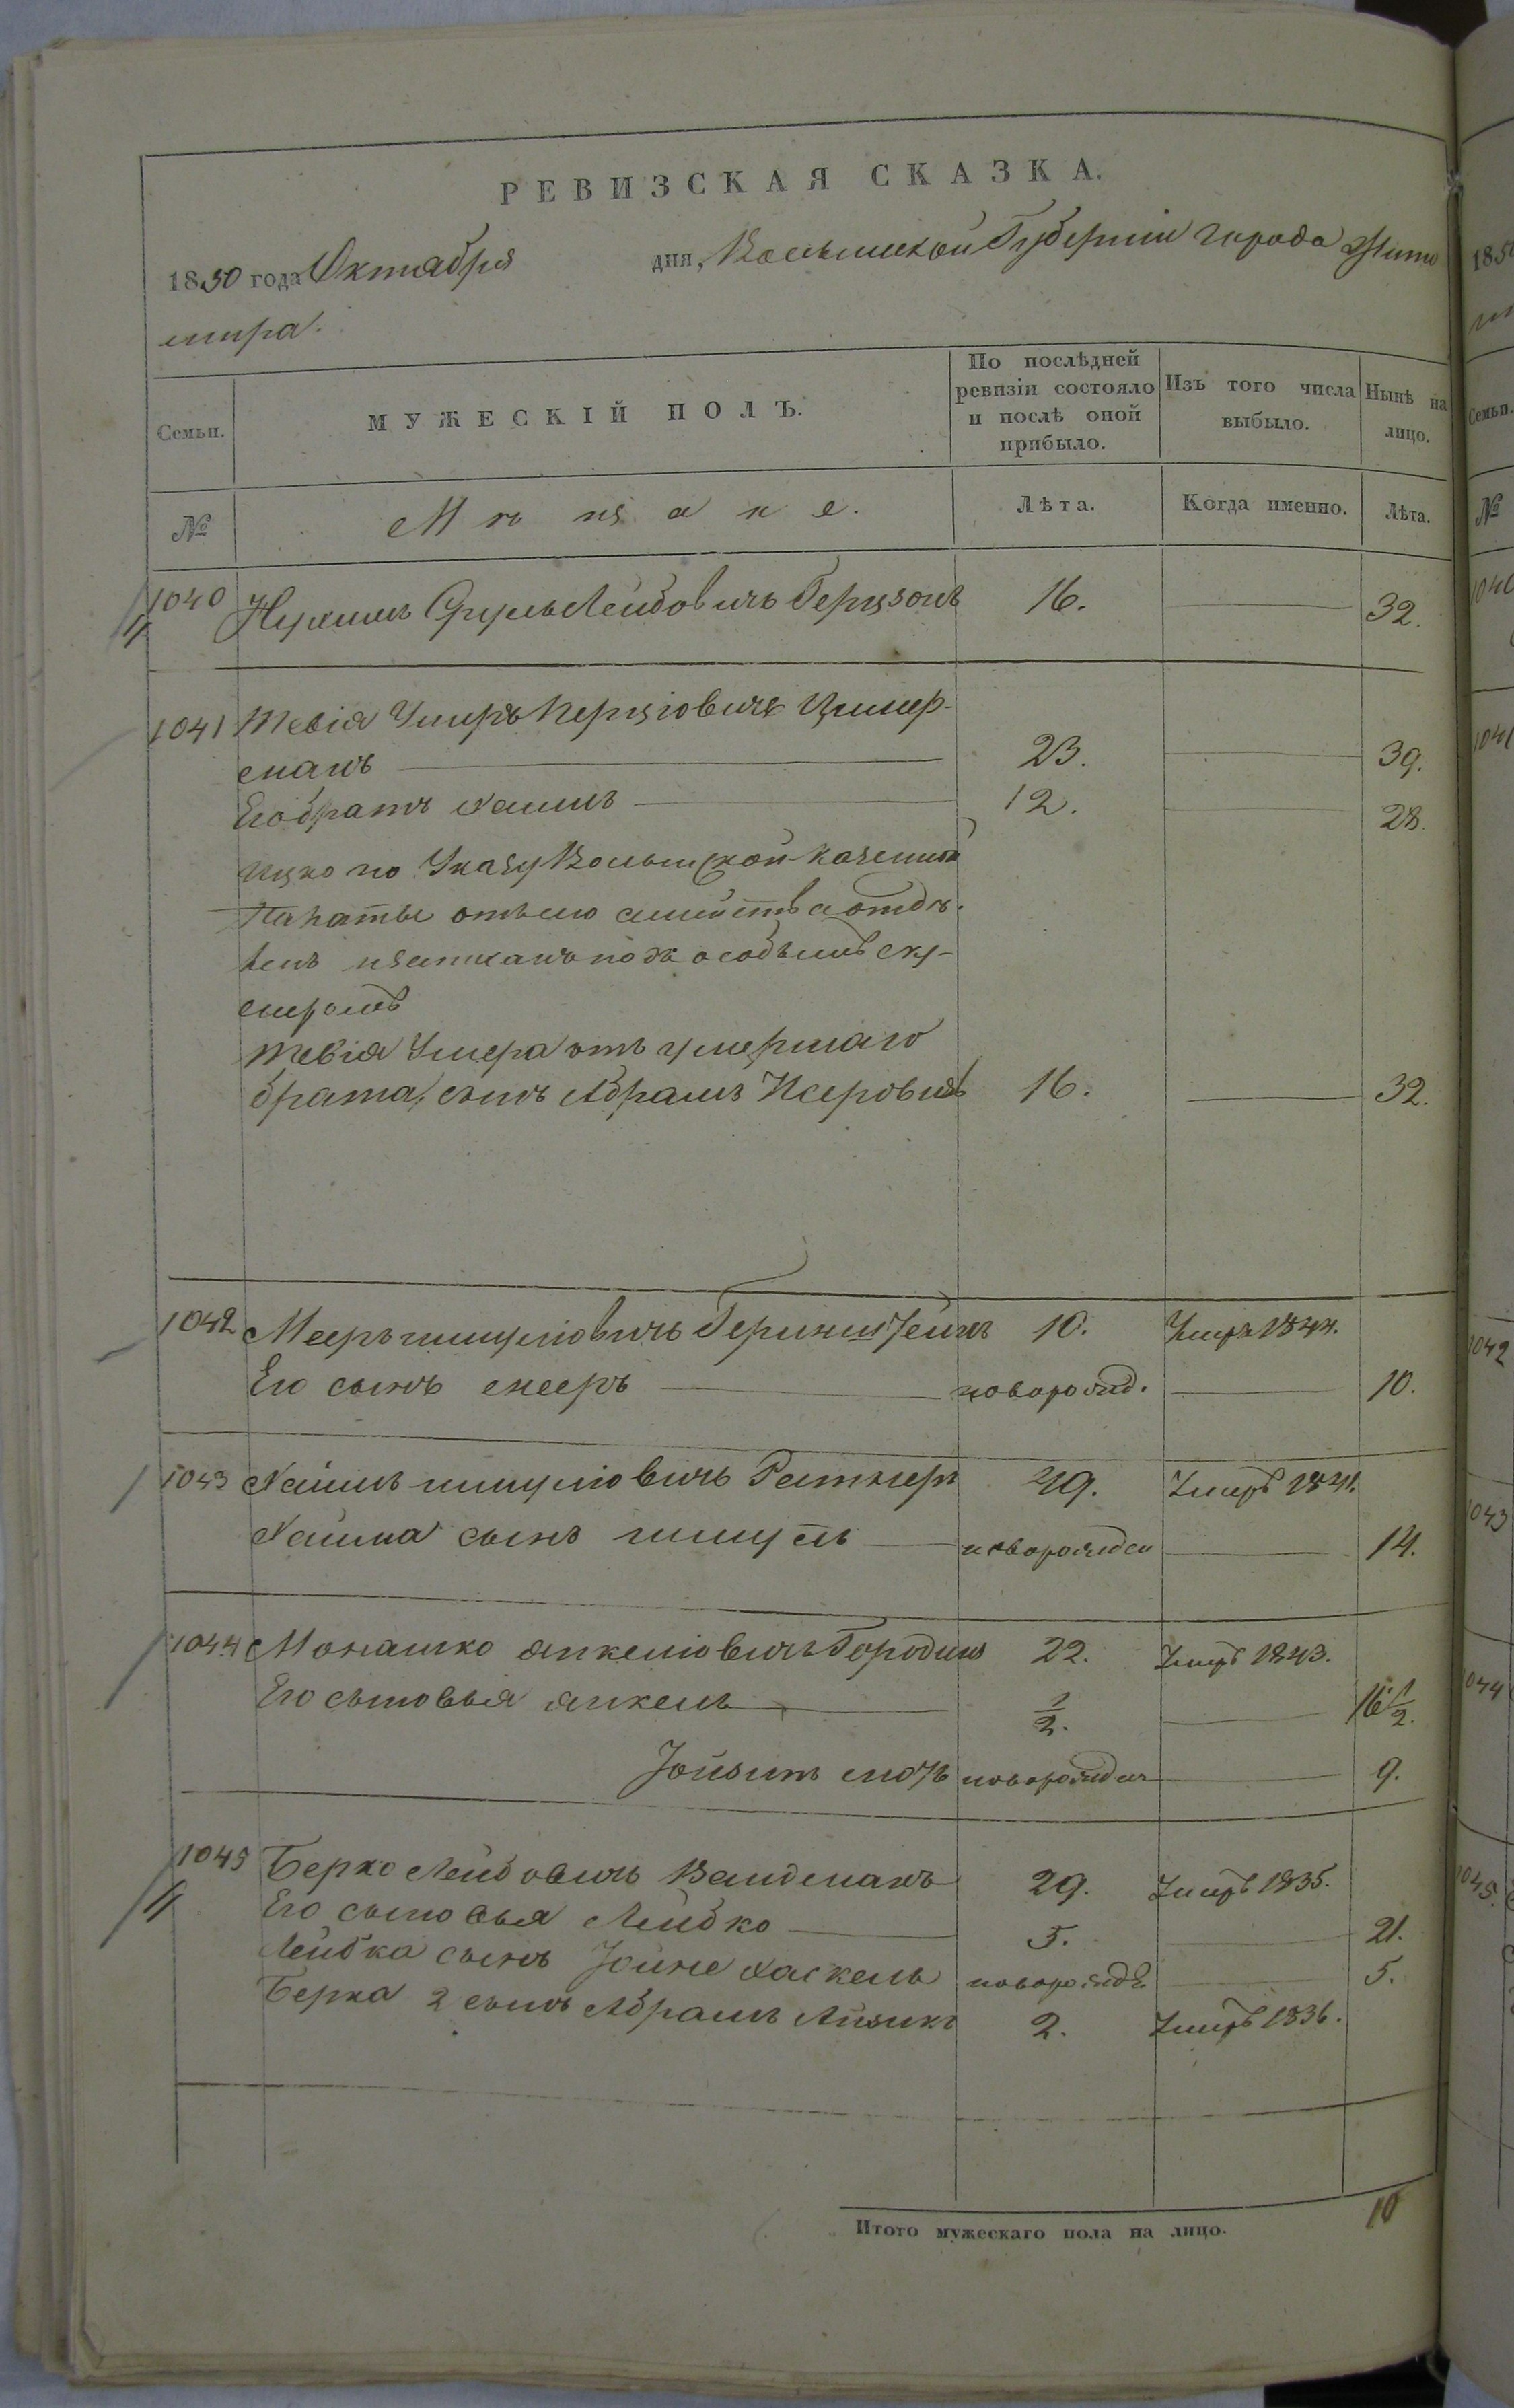 РЕВИЗСКАЯ СКАЗКА.
1850 года Октября дня, Волынской Губерніи города Жито
мира.
Семьи. МУЖЕСКІЙ ПОЛЪ. По послѣдней ревизіи состояло и послѣ оной прибыло. Изъ того числа выбыло. Нынѣ на лицо.
№ Мѣщане. Лѣта. Когда именно. Лѣта.
1040 Нухимъ Сруль Лейбовичъ Герцзонъ 16. 32.
1041 Тевія Умеръ Перцовичъ Цимер-
манъ 23. 39.
Его братъ Хаимъ 12. 28.
Ицко по Указу Волынской Казенной
Палаты отъ сего семейства отдѣ-
ленъ и записанъ подъ особымъ ну-
меромъ
Тевія Умера отъ умершаго
брата, сынъ Абрамъ Исеровичъ 16. 32.
1042 Мееръ Шмулiовичъ 10. Умеръ 1844.
Его сынъ Мееръ новорожд. 10.
1043 Хаимъ Шмулiовичъ Ратнеръ 49. Умеръ 1841.
Хаима сынъ Шмуль новорожден 14.
1044 Монашко Янкелiовичъ Городиш 22. Умеръ 1843.
Его сыновья Янкель 1/2. 16 1/2.
новорожден 9.
1045 Берко Лейбовичъ Вайдманъ 29. Умеръ 1835.
Его сыновья Лейбко 5. 21.
Лейбка сынъ Іойне Хаскель новорожд. 5.
Берка 2 сынъ Абрамъ Айзикъ 2. Умеръ 1836.
Итого мужескаго пола на лицо. 10
185
Семьи.
№
1040
1041
1042
1043
1044
1045.